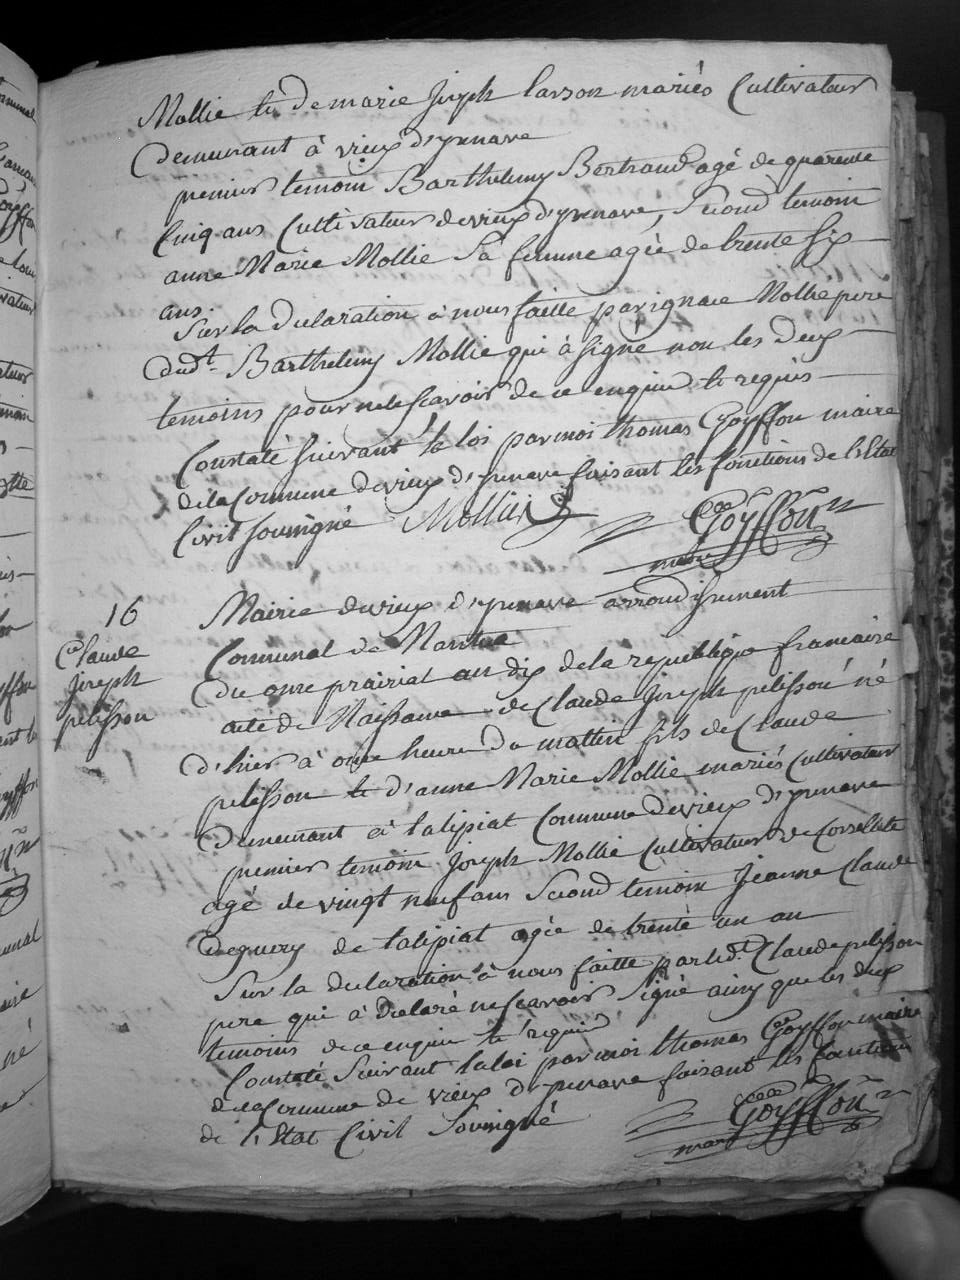 Mollie et de marie joseph larson mariés Cultivateur
demeurant à vieux d'yzenave
premier temoin Barthelemy Bertrand agé de quarente
Cinq ans Cultivateur de vieux d'yzenave, Second temoin
anne Marie Mollie Sa femme agée de trente six
ans.
Sur la declaration a nous faitte par ignace Mollie pere
dudt. Barthelemy Mollie qui à signé non les deux
temoins pour ne le scavoir de ce enquis et requis
Constaté suivant la loi par moi thomas Goyffon maire
de la Commune de vieux d'yzenave faisant les fonctions de l'Etat
Civil soussigné Mollie Goyffon
maire
16
Claude
joseph
pelisson
Mairie de vieux d'yzenave arrondissement
Communal de Nantua
Du onze prairial an dix de la republique francaise
acte de Naissance de Claude joseph pelisson né
d'hier à onze heure du mattin fils de Claude
pelisson et d'anne Marie Mollie mariés Cultivateur
demeurant à talipiat Commune de vieux d'yzenave
premier temoin joseph Mollie Cultivateur de
agé de vingt neuf ans Second temoin jeanne Claude
de talipiat agée de trente un an
Sur la declaration à nous faitte par ledt. Claude pelisson
pere qui à declaré ne scavoir Signé ainsy que les deux
temoins de ce enquis et requis
Constaté Suivant la loi par moi thomas Goyffon maire
de la Commune de vieux d'yzenave faisant les fonctions
de l'Etat Civil Soussigné Goyffon
maire